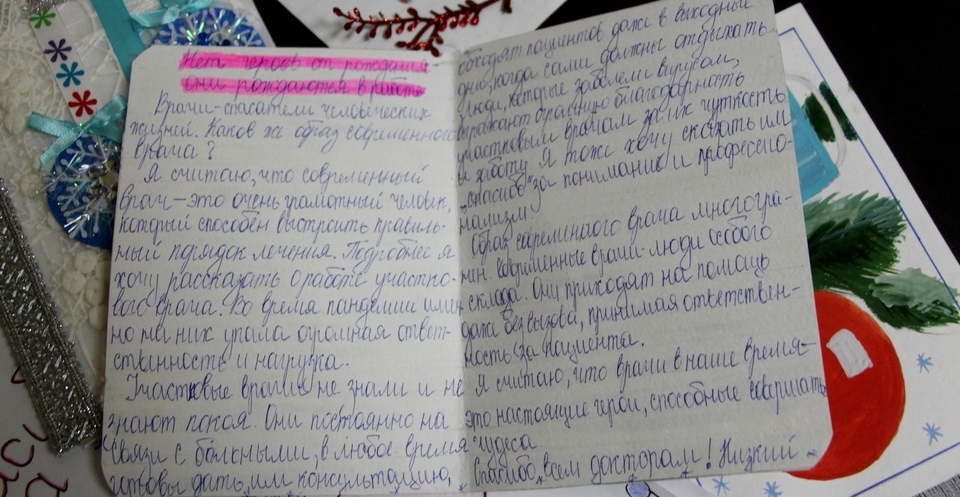 Нет героев от рождения
они рождаются в работе
Врачи-спасатели человеческих
жизней. Каков же образ современного
врача?
Я считаю, что современный
врач – это очень грамотный человек,
который способен выстроить правиль-
ный порядок лечения. Подробнее я
хочу рассказать о работе участко-
вого врача. Во время пандемии имен-
но на них упала огромная ответ-
ственность и нагрузка.
Участковые врачи не знали и не
знают покоя. Они постоянно на
связи с больными, в любое время
готовы дать им консультацию,
обходят пациентов даже в выходные
дни, когда сами должны отдыхать.
Люди, которые заболели вирусом,
выражают огромную благодарность
участковым врачам за их чуткость
и заботу. Я тоже хочу сказать им
"спасибо" за понимание и профессио-
нализм.
Образ современного врача многогра-
нен. Современные врачи-люди особого
склада. Они приходят на помощь
даже без вызова, принимая ответствен-
ность за пациента.
Я считаю, что врачи в наше время –
это настоящие герои, способные совершать
чудеса.
Спасибо, всем докторам! Низкий